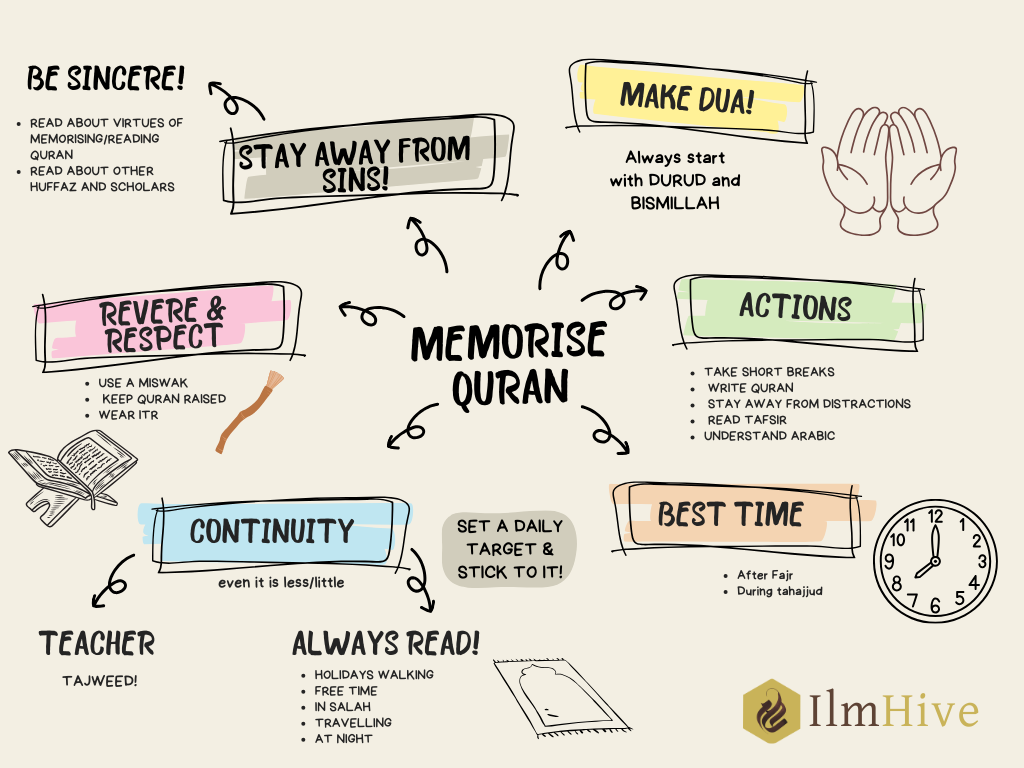 BE SINCERE!
• READ ABOUT VIRTUES OF
MEMORISING/READING
QURAN
• READ ABOUT OTHER
HUFFAZ AND SCHOLARS
STAY AWAY FROM
SINS!
MAKE DUA!
Always start
with DURUD and
BISMILLAH
REVERE &
RESPECT
• USE A MISWAK
• KEEP QURAN RAISED
• WEAR ITR
MEMORISE
QURAN
ACTIONS
• TAKE SHORT BREAKS
• WRITE QURAN
• STAY AWAY FROM DISTRACTIONS
• READ TAFSIR
• UNDERSTAND ARABIC
CONTINUITY
even it is less/little
SET A DAILY
TARGET &
STICK TO IT!
BEST TIME
• After Fajr
• During tahajjud
12
1
2
3
4
5
6
7
8
9
10
11
TEACHER
TAJWEED!
ALWAYS READ!
• HOLIDAYS WALKING
• FREE TIME
• IN SALAH
• TRAVELLING
• AT NIGHT
IlmHive